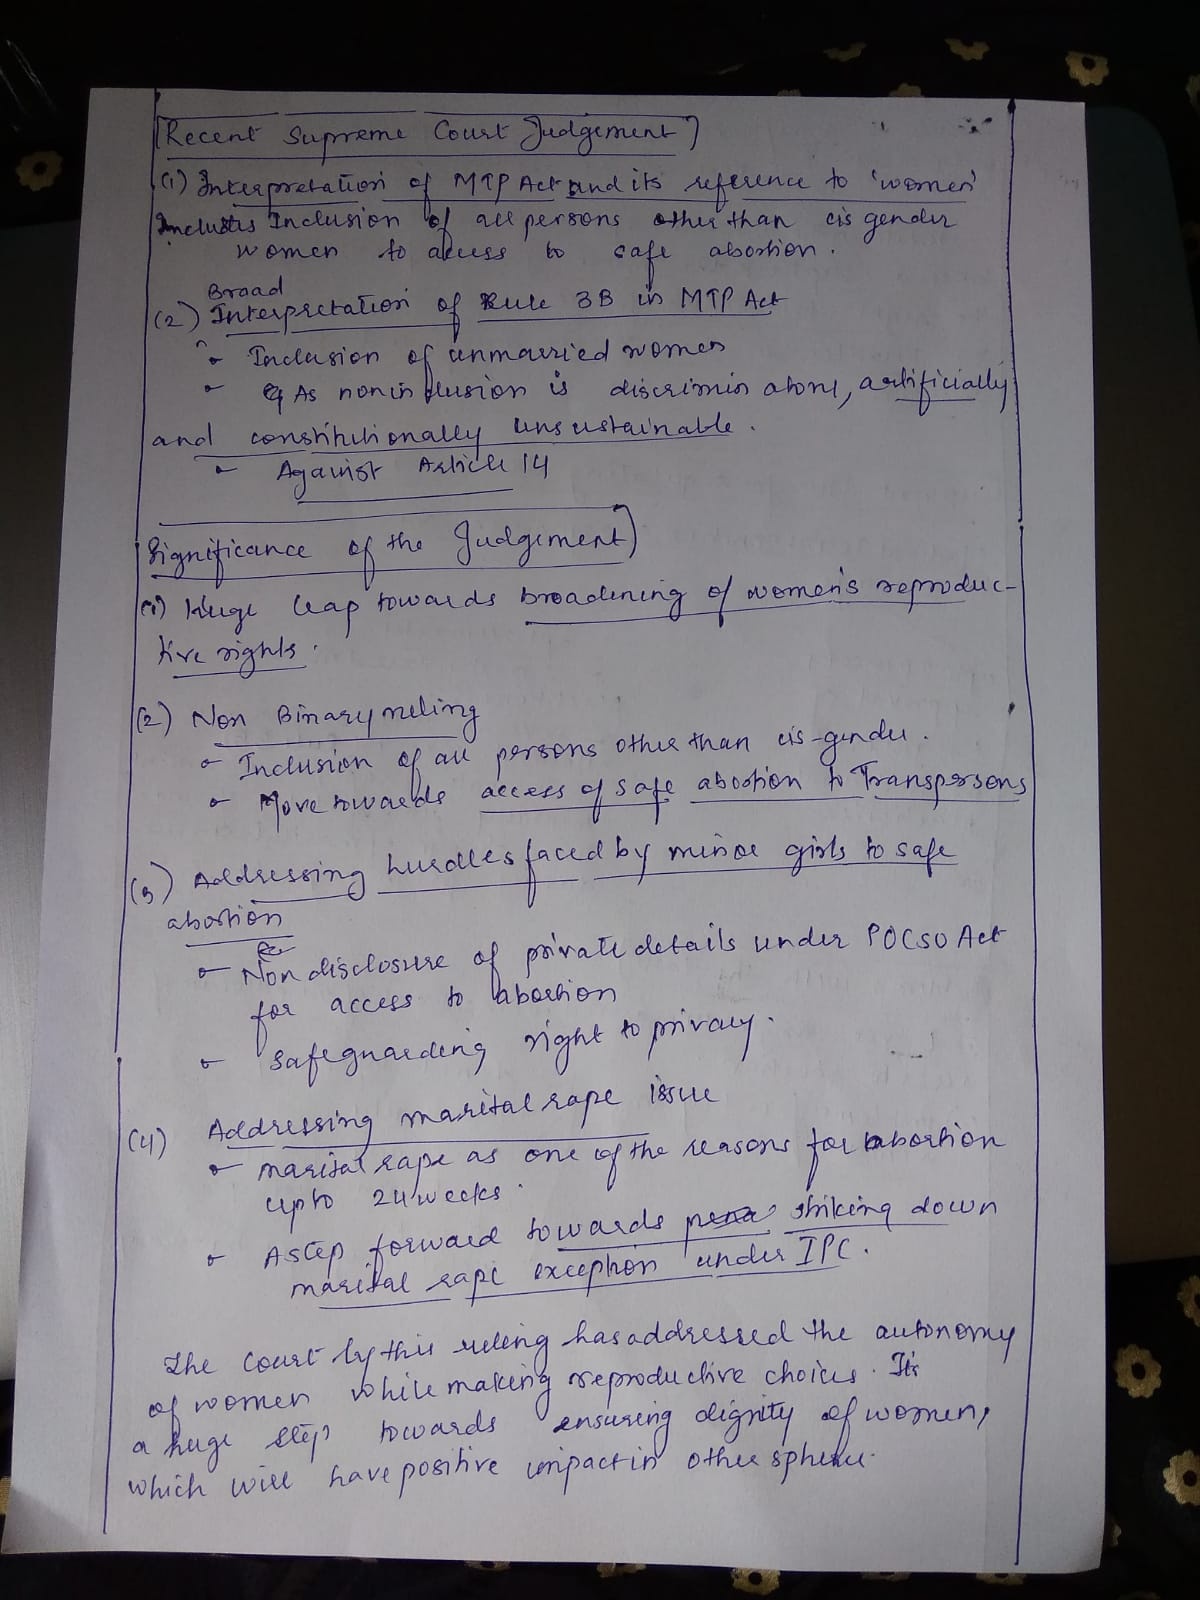 Recent Supreme Court Judgement
(1) Interpretation of MTP Act and its reference to 'women'
Inclusion of all persons other than cis gender
women to access to safe abortion.
Broad
(2) Interpretation of Rule 3B in MTP Act
Inclusion of unmarried women
As non inclusion is discriminatory, artificially
and constitutionally unsustainable.
Against Article 14
Significance of the Judgement
(1) Huge leap towards broadening of women's reproduc-
tive rights.
(2) Non Binary ruling
Inclusion of all persons other than cis-gender.
Move towards access of safe abortion to Transpersons
(3) Addressing hurdles faced by minor girls to safe
abortion
Non disclosure of private details under POCSO Act
for access to abortion
Safeguarding right to privacy.
(4) Addressing marital rape issue
marital rape as one of the reasons for abortion
upto 24 weeks.
A step forward towards striking down
marital rape exception under IPC.
The Court by this ruling has addressed the autonomy
of women while making reproductive choices. It's
a huge step towards ensuring dignity of women,
which will have positive impact in other sphere.